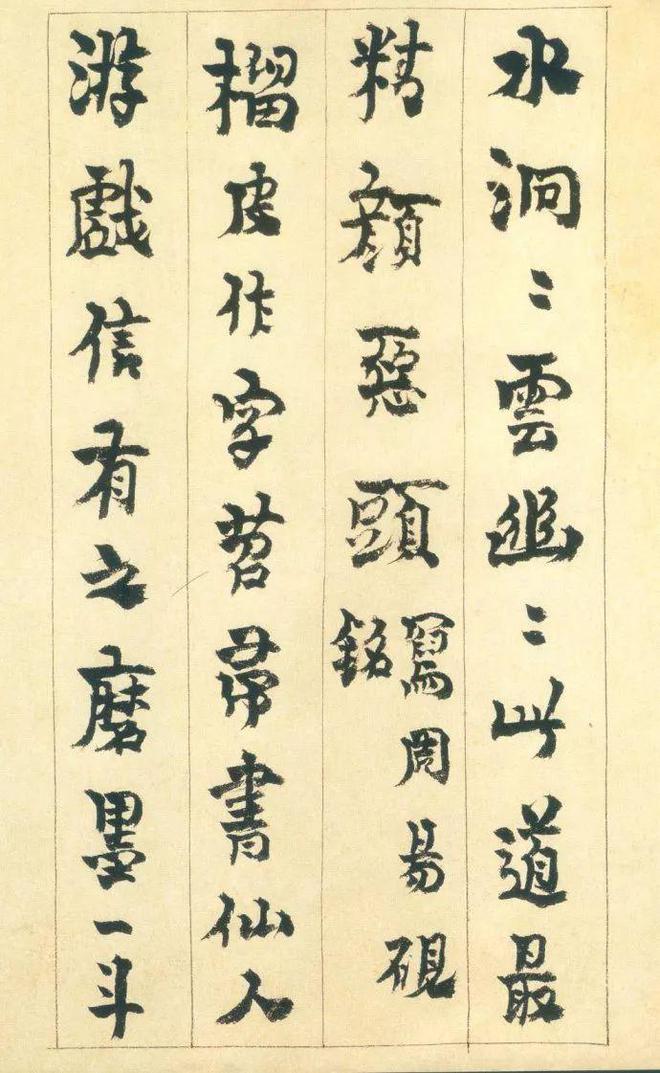 水洞〻雲幽〻此道最
精顏惡頭寫周易硯銘
榴皮作字苕帚書仙人
游戲信有之磨墨一斗